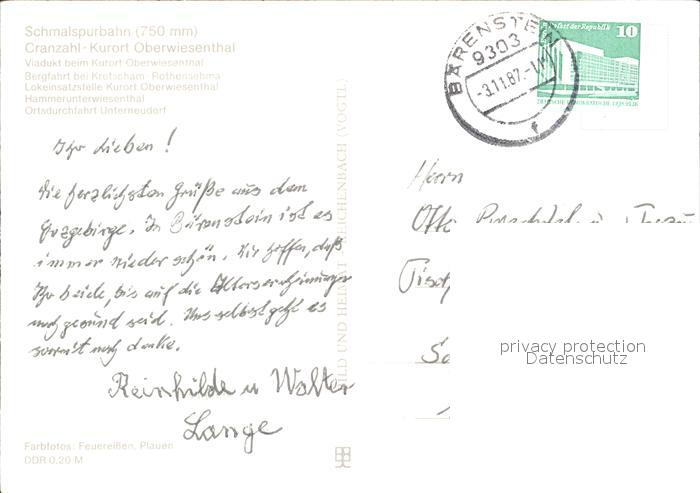 Schmalspurbahn (750 mm)
Cranzahl - Kurort Oberwiesenthal
Viadukt beim Kurort Oberwiesenthal
Bergfahrt bei Kretscham-Rothensehma
Lokeinsatzstelle Kurort Oberwiesenthal
Hammerunterwiesenthal
Ortsdurchfahrt Unterneudorf
Ihr Lieben!
Die herzlichsten Grüße aus dem
Erzgebirge. In Bärenstein ist es
immer wieder schön. Wir hoffen, daß
Ihr beide, bis auf die Alterserscheinungen
noch gesund seid. Uns selbst geht es
soweit noch danke.
Reinhilde u Walter
Lange
Farbfotos: Feuereißen, Plauen
DDR 0,20 M
BILD UND HEIMAT REICHENBACH (VOGTL)
BÄRENSTEIN
9303
-3.11.87.-
f
Palast der Republik 10
DEUTSCHE DEMOKRATISCHE REPUBLIK
Herrn
Otto
privacy protection
Datenschutz